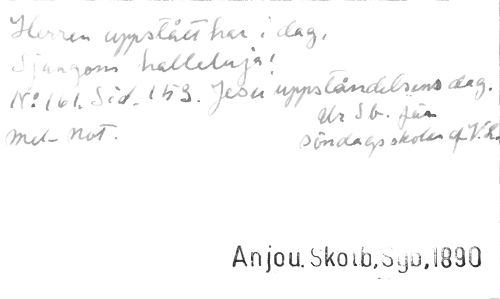 Herren uppstått har i dag,
Sjungom halleluja!
No 161. Sid. 153. Jesu uppståndelsens dag.
Ur Sb. för
Mel. Not. söndagsskolan af V.S.
Anjou. Skolb, Syb, 1890